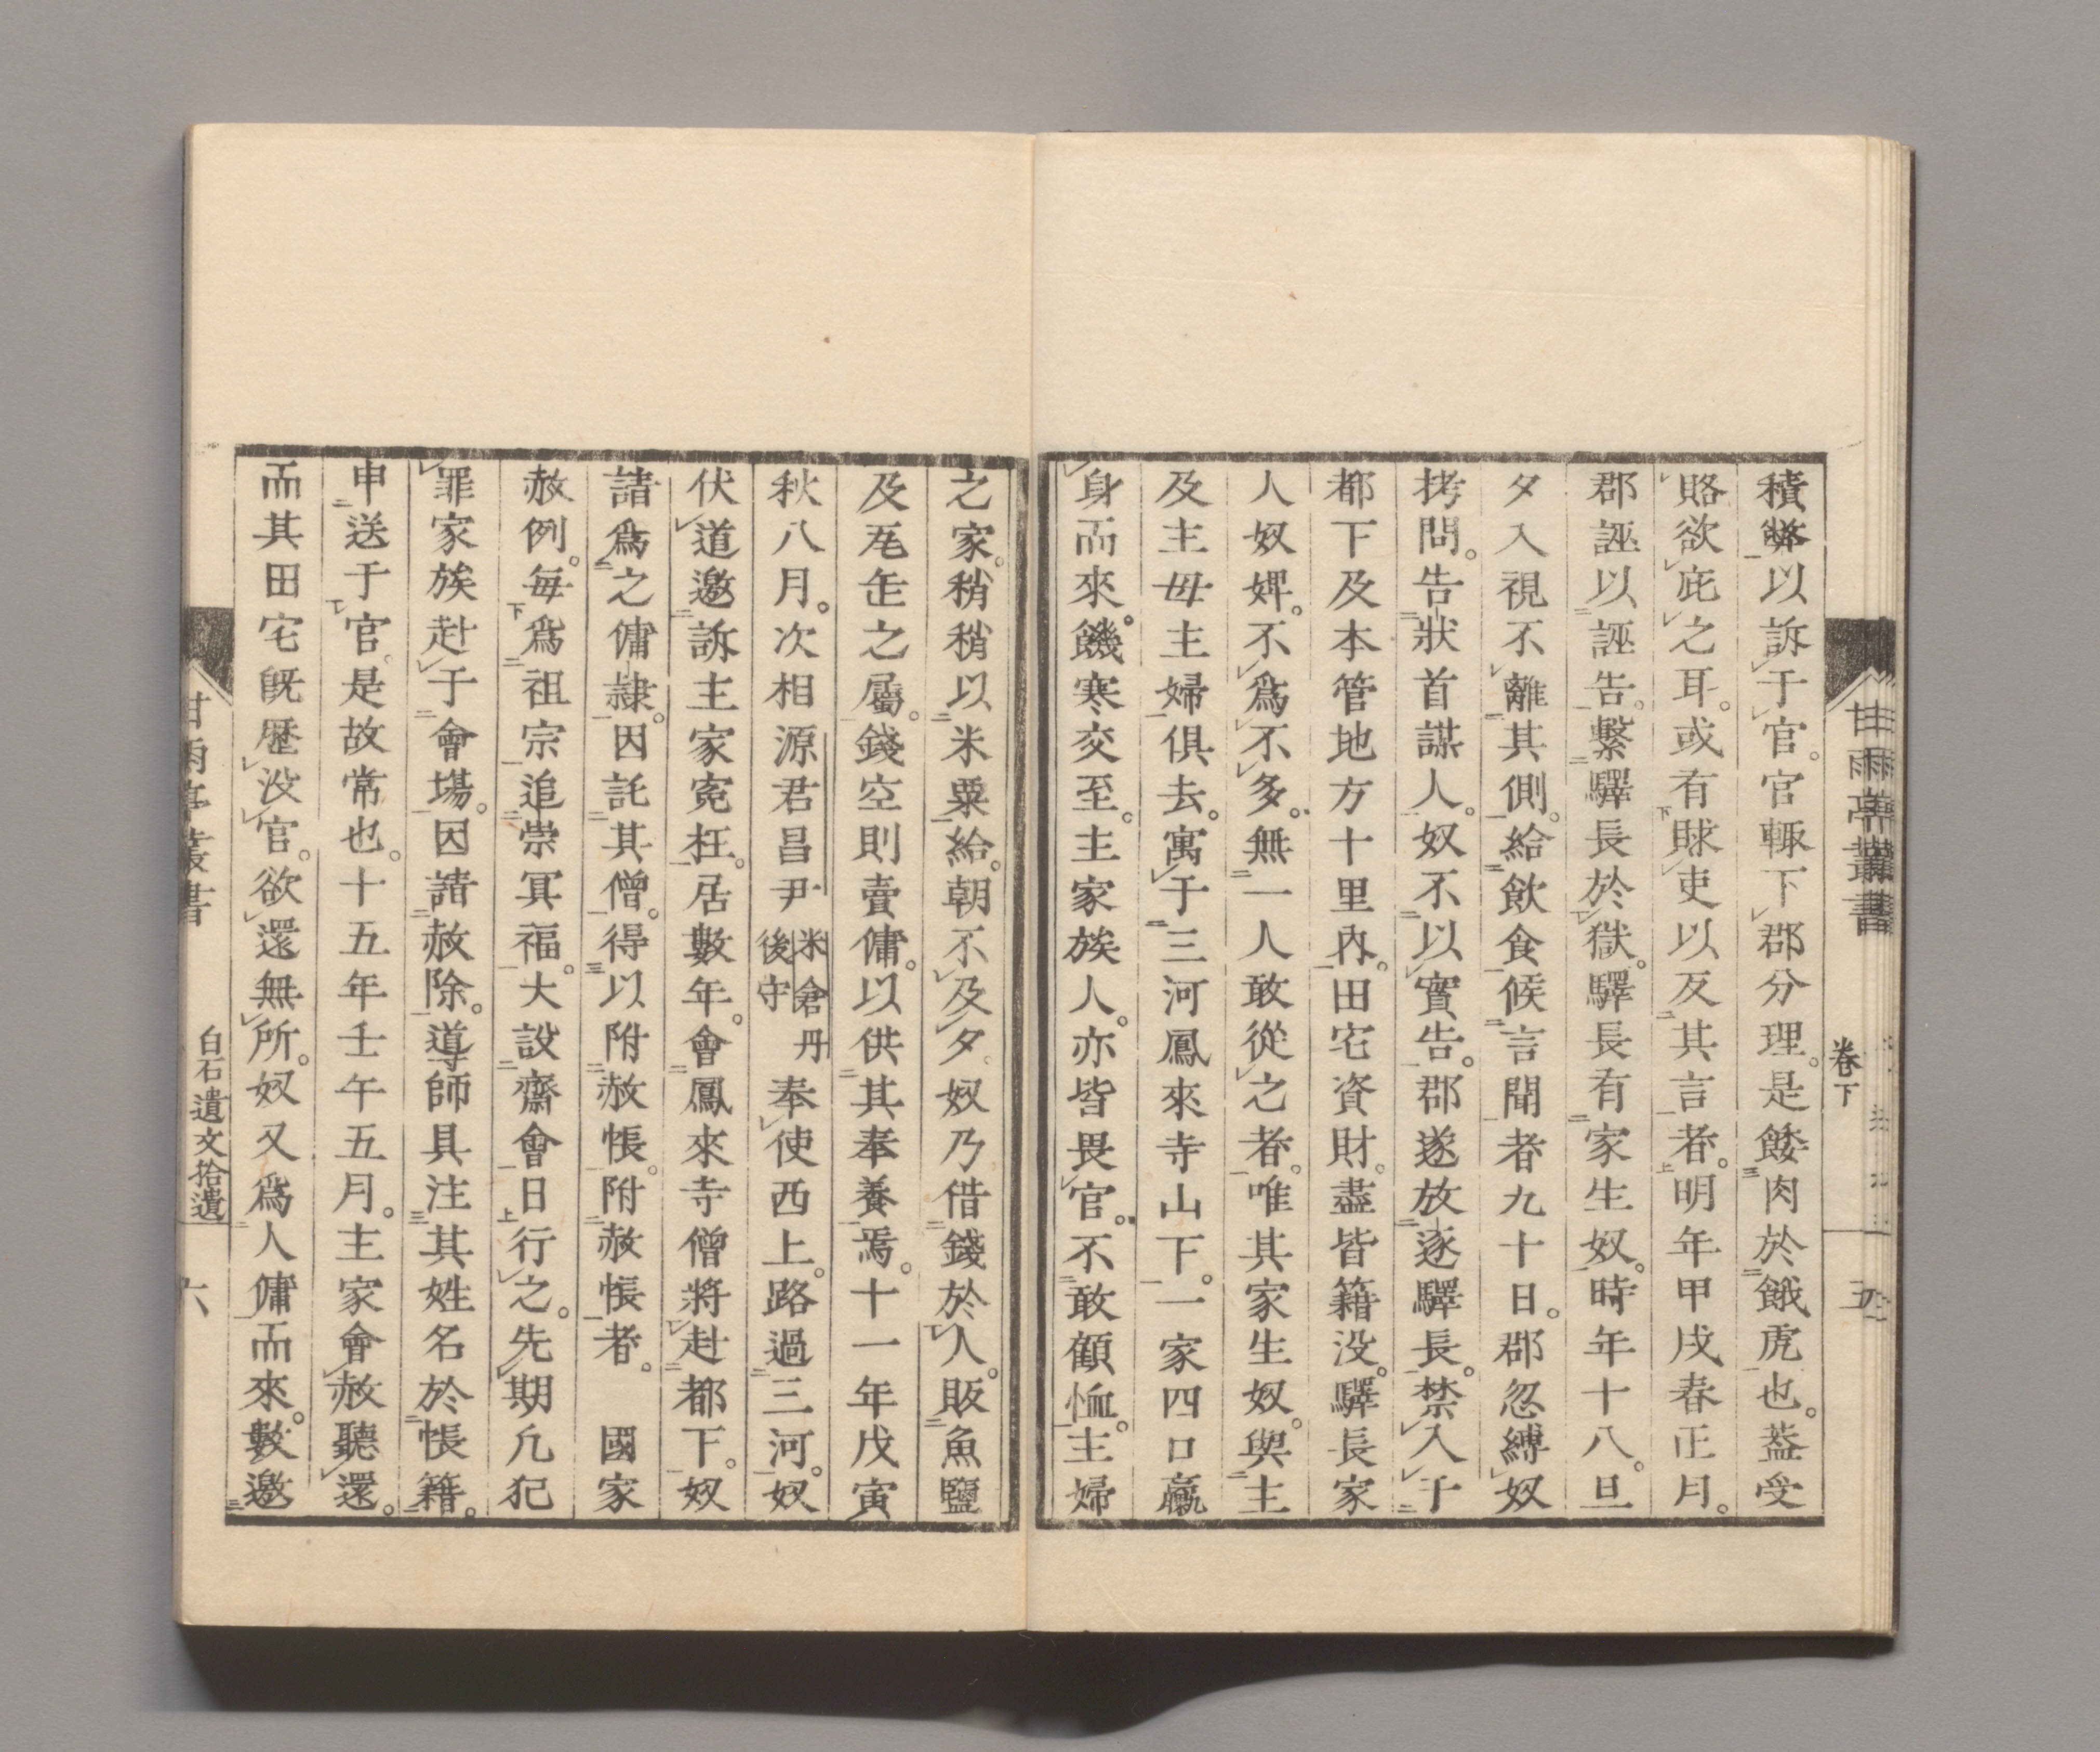 積弊以訴于官。官輙下郡分理。是餧肉於餓虎也。葢受
賂欲庇之耳。或有賕吏以反其言者。明年甲戌春正月。
郡誣以誣告。繫驛長於獄。驛長有家生奴。時年十八。旦
夕入視不離其側。給飲食候言聞者九十日。郡忽縛奴
拷問。告狀首謀人。奴不以實告。郡遂放逐驛長。禁入于
都下及本管地方十里內。田宅資財。盡皆籍没。驛長家
人奴婢。不爲不多。無一人敢從之者。唯其家生奴。與主
及主母主婦俱去。寓于三河鳳來寺山下。一家四口羸
身而來。饑寒交至。主家族人。亦皆畏官。不敢顧恤。主婦
甘雨亭叢書
卷下
五
之家。稍稍以米粟給。朝不及夕。奴乃借錢於人。販魚鹽
及瓦缶之屬。錢空則賣傭。以供其奉養焉。十一年戊寅
秋八月。次相源君昌尹米倉丹後守奉使西上。路過三河。奴
伏道邀訴主家寃枉。居數年。會鳳來寺僧將赴都下。奴
請爲之傭隷。因託其僧。得以附赦帳。附赦帳者。　國家
赦例。每爲祖宗追崇冥福。大設齋會日行之。先期凢犯
罪家族赴于會塲。因請赦除。導師具注其姓名於帳籍。
申送于官。是故常也。十五年壬午五月。主家會赦聽還。
而其田宅旣歷没官。欲還無所。奴又爲人傭而來。數邀
甘雨亭叢書
白石遺文拾遺
六